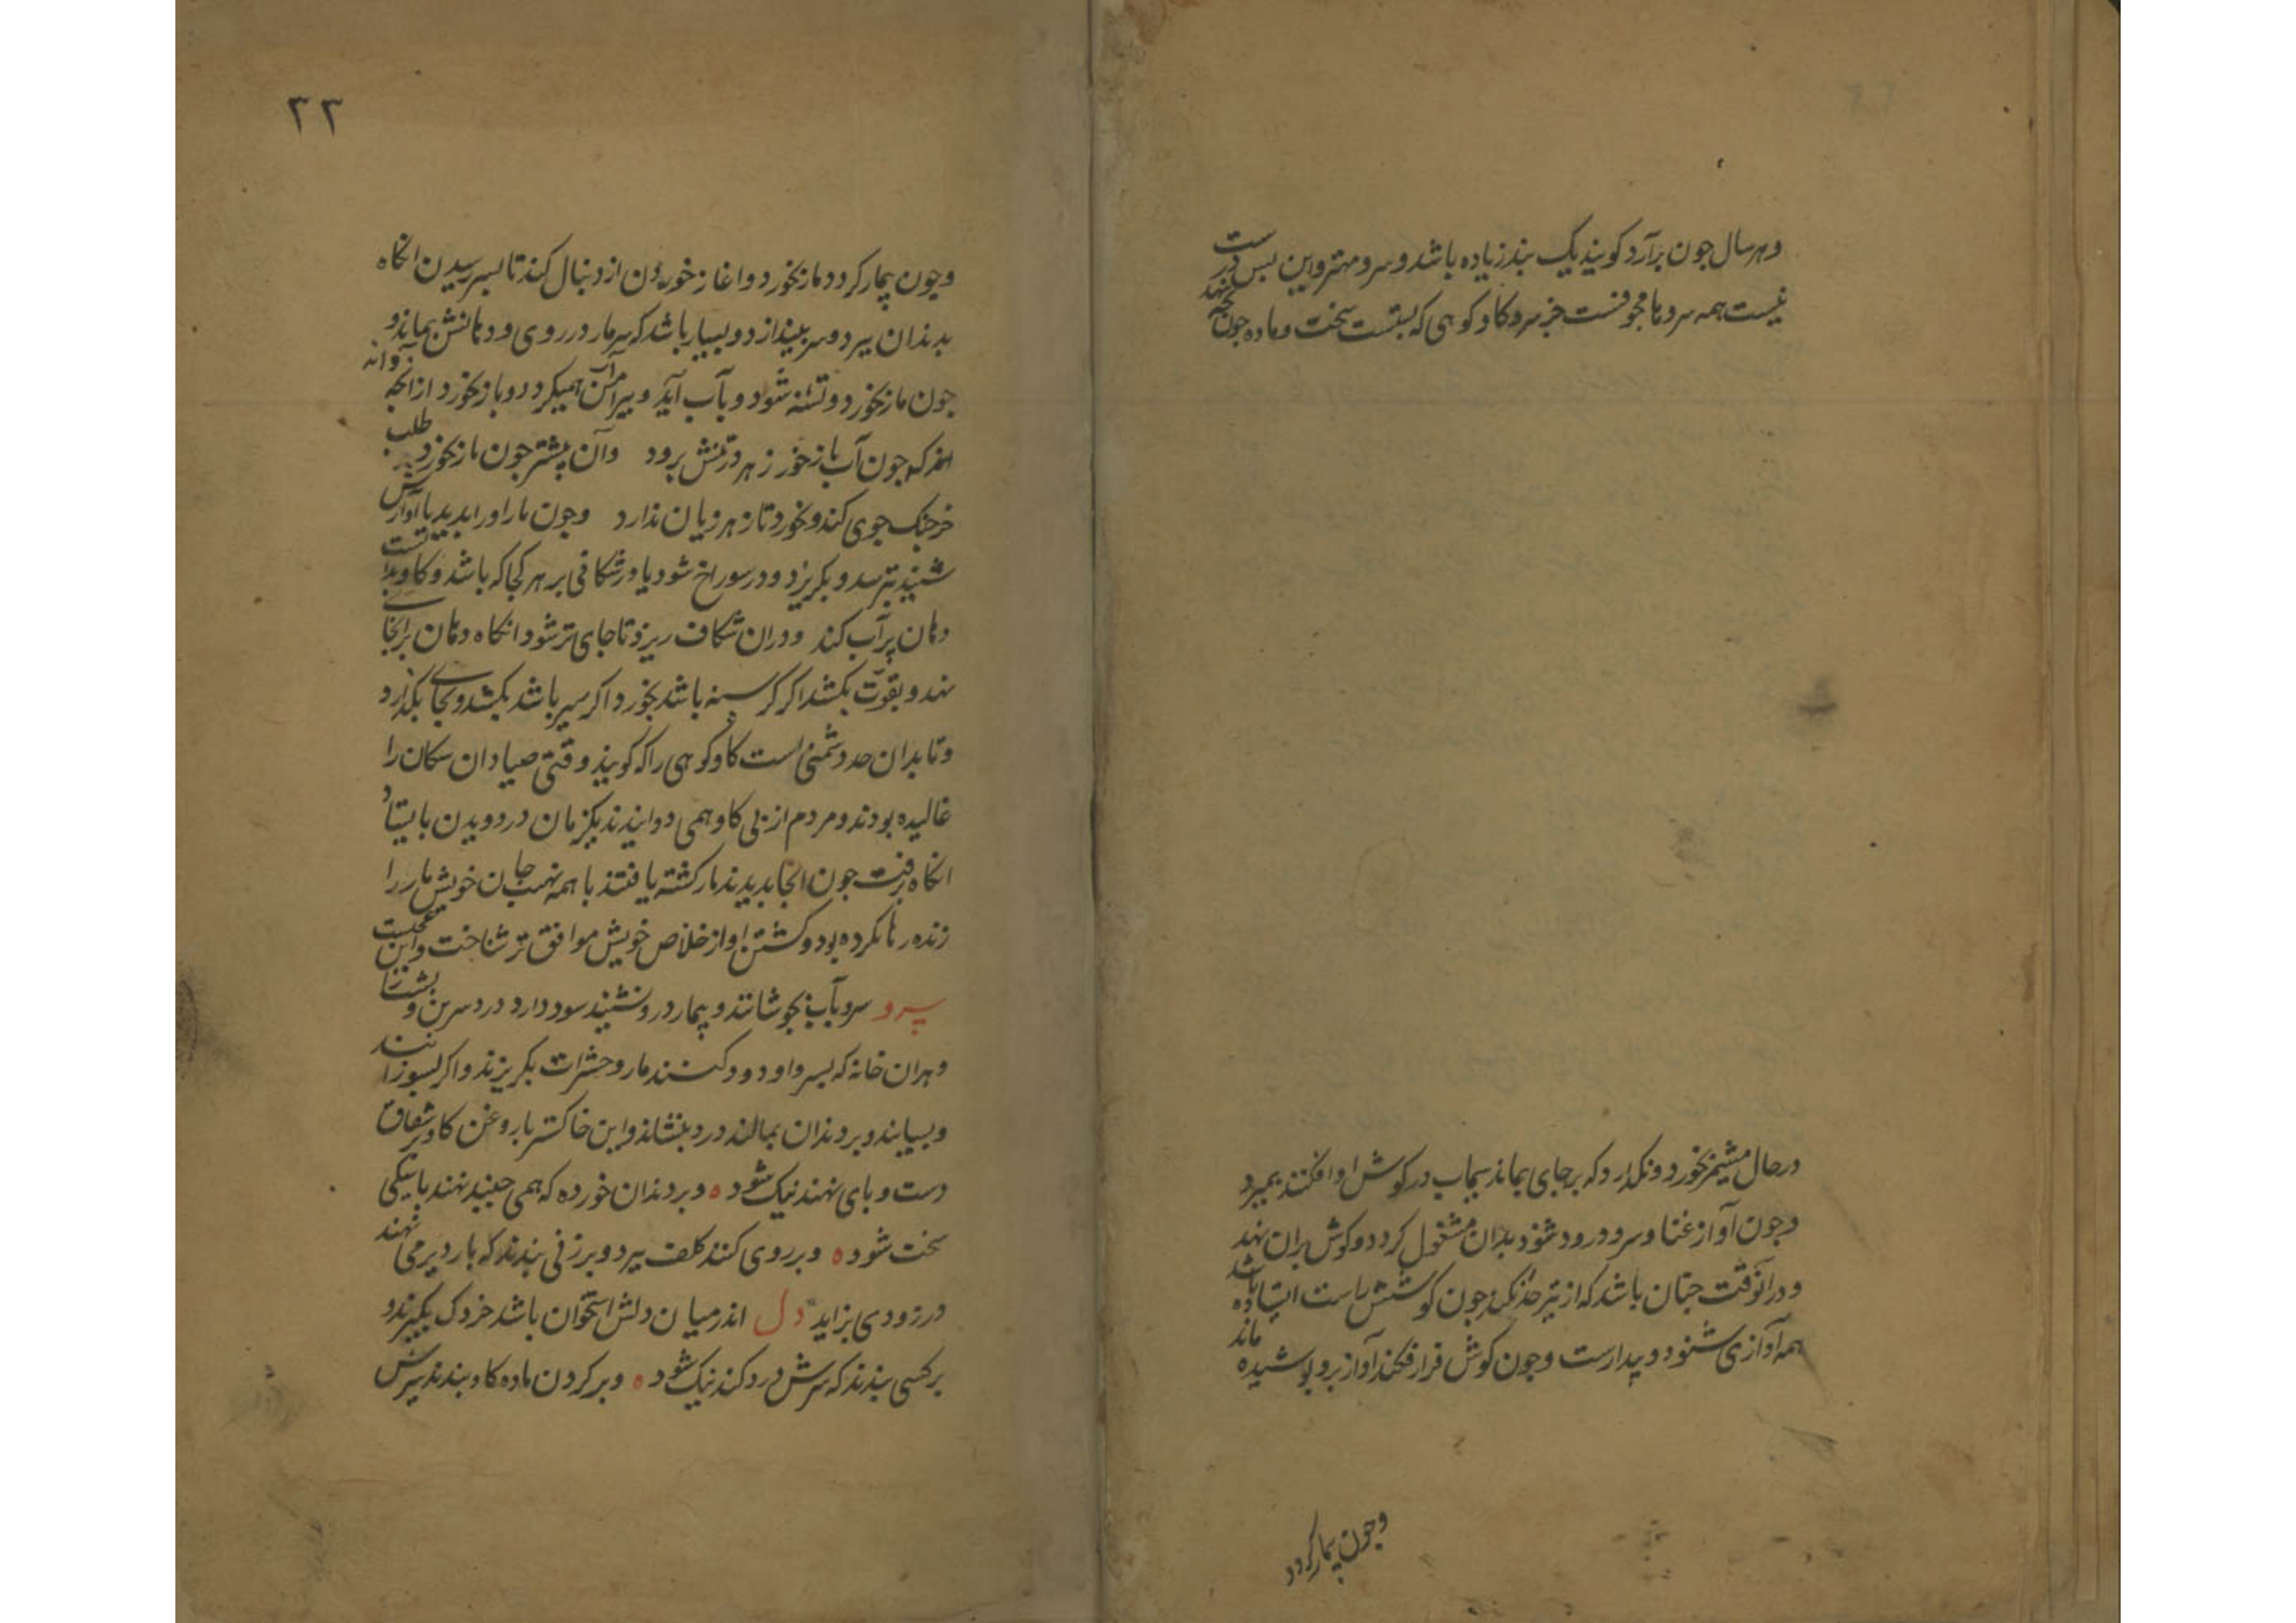 وهر سال جون برآرد کویند یک بند زیاده باشد و سر و مهتر و این بس درست
نیست همه سروها مجوفست جز سرو کاو کوهی که بستست سخت و ماده جون بچه نهد
در حال مشیمه بخورد و نکذارد که بر جای بماند سیماب در کوش او افکنند بمیرد
وجون آواز غنا و سرود و رود شنود بدان مشغول کردد و کوش بران نهد
و در آنوقت جنان باشد که از تیر حذر نکند جون کوشش راست ایستاده باشد
همه آوازی شنود و بیدارست وجون کوش فراز فکند آواز برو بوشیده ماند
وجون بیمار کردد
۲۳
وجون بیمار کردد مار بخورد و اغاز خوردن از دنبال کند تا بسر رسیدن انکاه
بدندان ببرد و سر بیندازد و بسیار باشد که سر مار در روی و دهانش بماند و
جون مار بخورد و تشنه شود و بآب آید و بیرامن آن همیکردد و باز نخورد از آنجه
داند که جون آب باز خورد زهر در تنش برود وآن بیشتر جون مار بخورد طلب
خرجنک جوی کند و بخورد تا زهر زیان ندارد وجون مار او را بدید یا آوازش
شنید بترسد و بکریزد و در سوراخ شود یا در شکافی بر هر کجا که باشد و کاو بدانست
دهان بر آب کند و دران شکاف ریزد تا جای تر شود انکاه دهان بر انجای
نهد و بقوت بکشد اکر کرسنه باشد بخورد اکر سیر باشد بکشد و بجای بکذارد
وتا بدان حد دشمنی است کاو کوهی را که کویند وقتی صیادان سکان را
غالیده بودند و مردم از بی کاو همی دوانیدند یکزمان در دویدن بایستاد
انکاه برفت جون انجا بدیدند مار کشته یافتند با همه نهیب جان خویش مار را
زنده رها نکرده بود و کشتن او از خلاص خویش موافق تر شناخت و این عجبست
سرو سرو بآب بجوشانند و بیمار درو نشیند سود دارد درد سرین و بشت را
وهران خانه که بسرو او دود کنند مار و حشرات بکریزند و اکر بسوزانند
و بسایند و بر دندان بمالند درد بنشاند و این خاکستر با روغن کاو بر شقاق
دست و بای نهند نیک شود ه و بر دندان خورده که همی جنبد نهند بانیکی
سخت شود ه و بر روی کنند کلف ببرد و بر زنی بندند که بار دیر می نهند
در زودی بزاید دل اندر میان دلش استخوان باشد خردک بکیرند و
بر کسی بندند که سرش درد کند نیک شود ه و بر کردن ماده کاو بندند شیرش